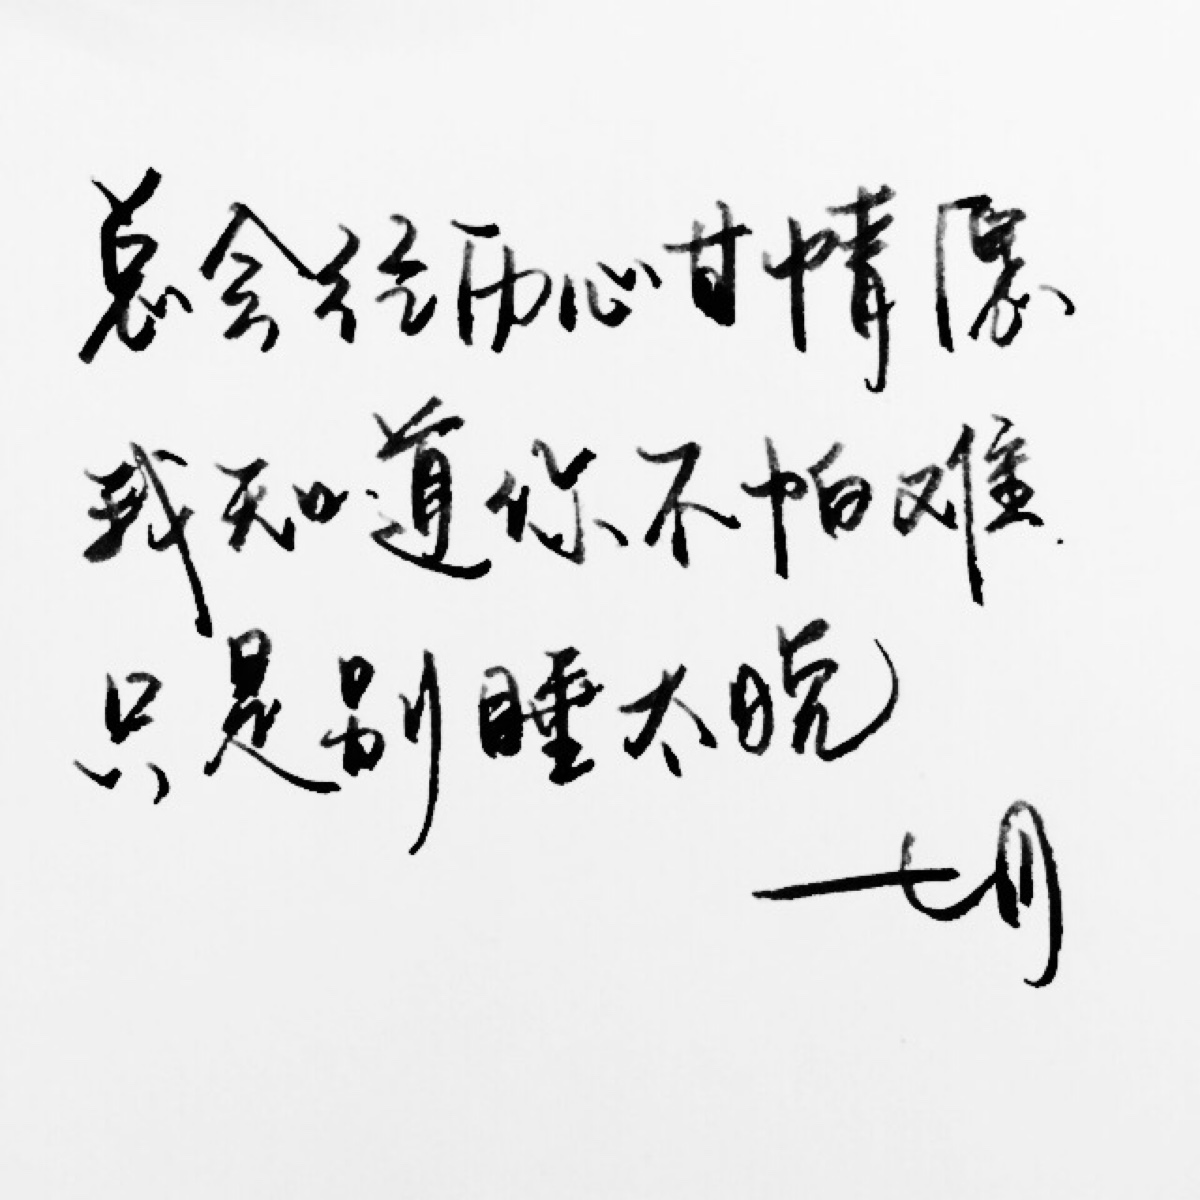 总会经历心甘情愿
我知道你不怕难
只是别睡太晚
七月